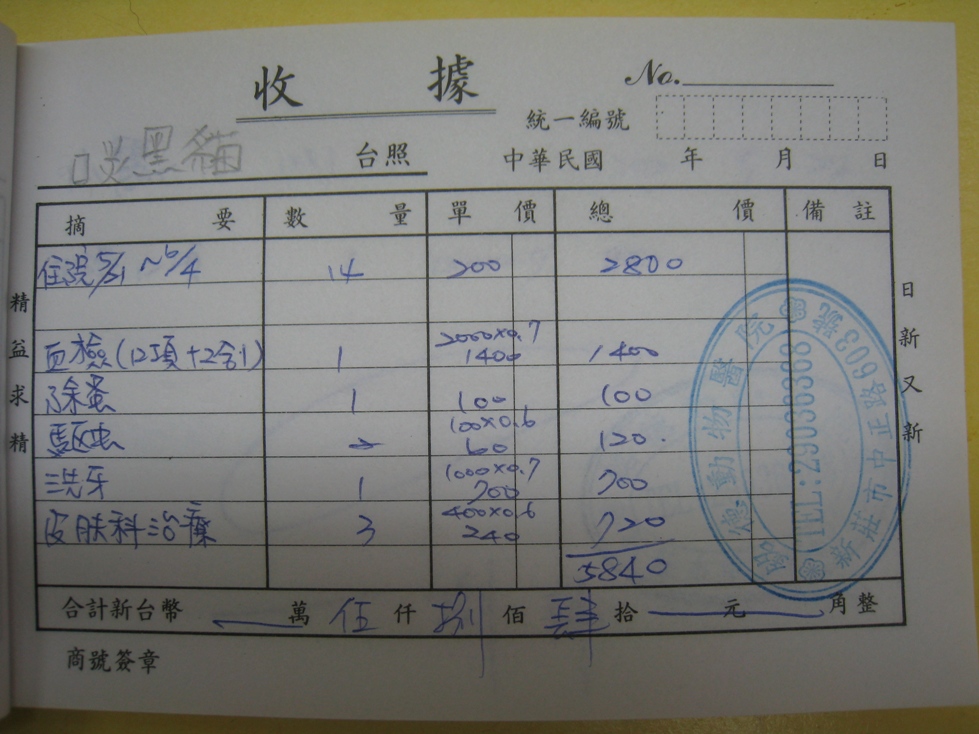 收 據
No.
統一編號
黑貓 台照
中華民國 年 月 日
摘要 數量 單價 總價 備註
住院 5/21 ~ 6/4 14 200 2800
血檢(12項+2合1) 1 2000×0.7 1400 1400
除蚤 1 100 100
驅虫 2 100×0.6 60 120.
洗牙 1 1000×0.7 700 700
皮肤科治療 3 400×0.6 240 720
5840
合計新台幣 萬 伍 仟 捌 佰 肆 拾 元 角整
商號簽章
精益求精
日新又新
德動物醫院
TEL:29036388
新莊市中正路603號